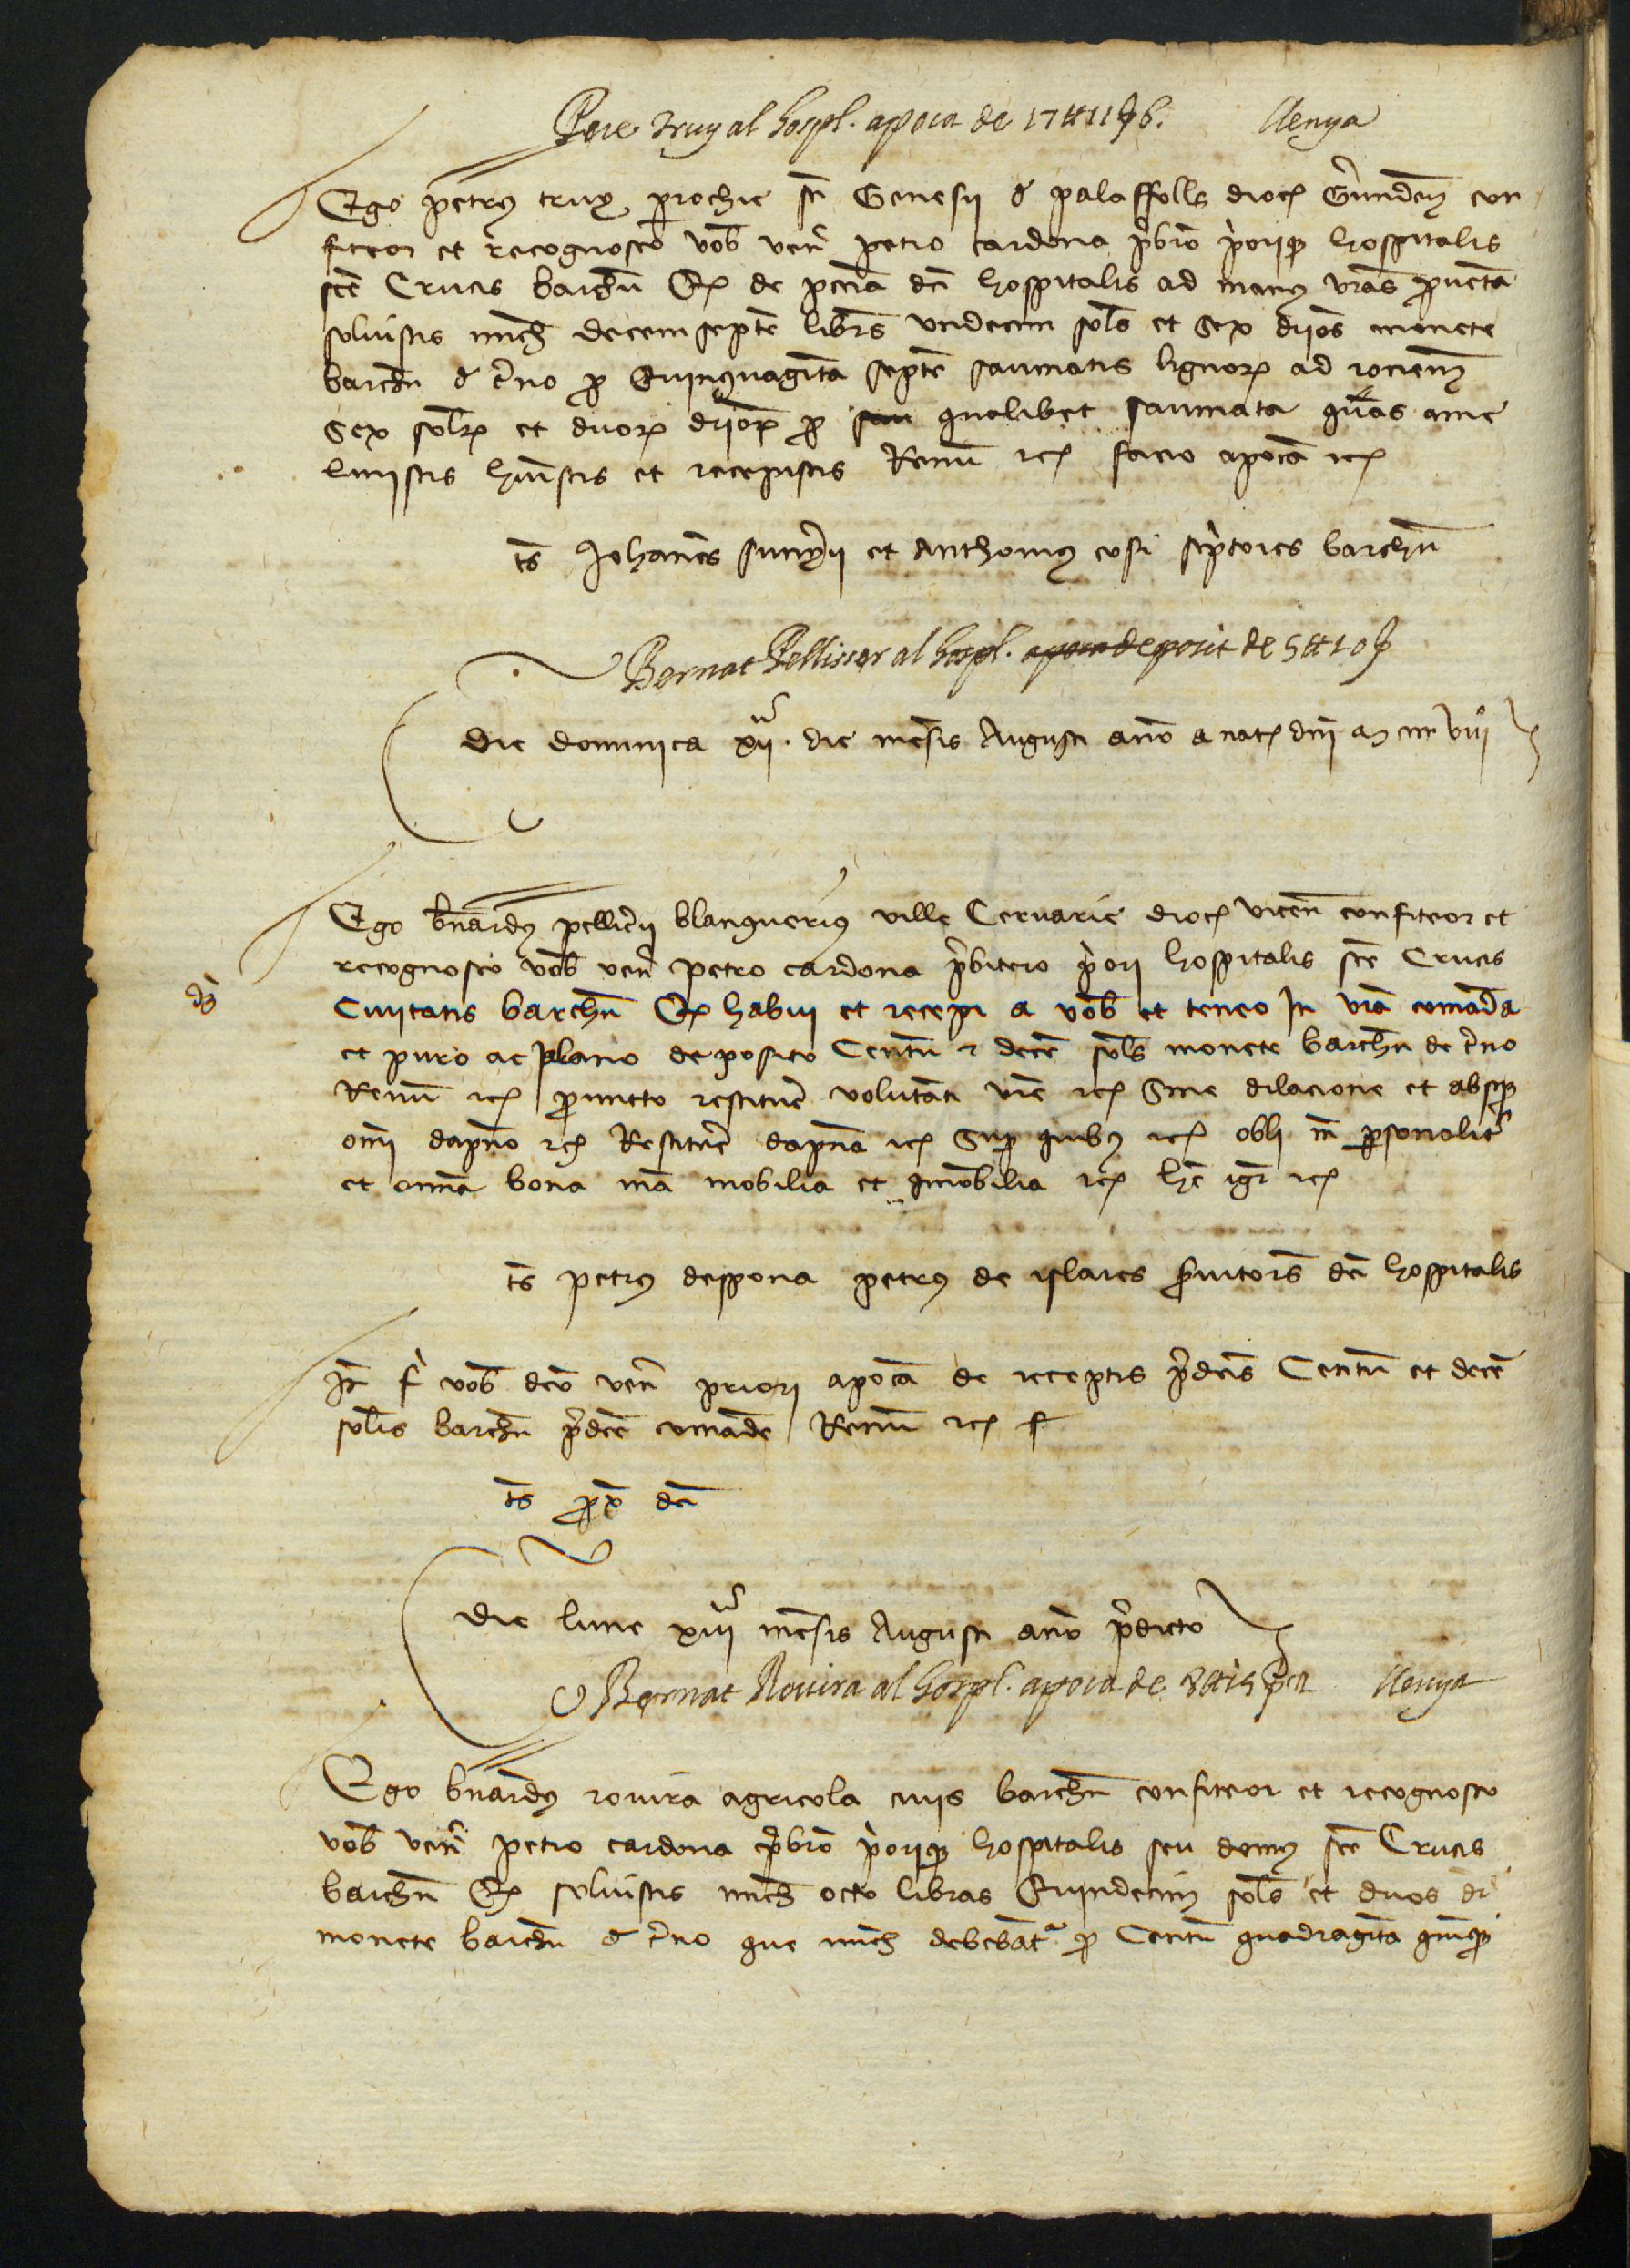 Pere Truy al hospl. apoca de 17 ₶ 11 ß 6. llenya
Ego petrus trux parrochie sti Genesii de palaffolls dioc Gerunden con
fiteor et recognosco vob ven petro cardona prbro priorique hospitalis
ste Crucis barchn Qz de pecia dci hospitalis ad manus vras pventa
solvistis mich decemsepte libras undecim sols et sex drios monete
barchn de terno pro Quinquaginta septe saumatis lignorz ad racionem
sex solrz et duorz driorz pro qualibet saumata quas a me
huistis et recepistis Renun rcz facio apoca rcz
ts Johanes et Anthonius scriptores barchn
Bernat Pellisser al hospl. apoca deposit de 5 ₶ 10 ß
Die dominica xii die mensis Augusti anno a nat dni
Ego bnardus pellicerii blanquerius ville Cervarie dioc vicen confiteor et
recognosco vob ven petro cardona prbitero priori hospitalis ste Crucis
Civitatis barchn Qz habui et recepi a vob et teneo In vra comada
et puro ac plano deposito Centum et decem sols monete barchn de terno
Renun rcz promitto restituere volutati vre rcz Sine dilacione et absque
omi dapno rcz Restituere dapna rcz Sup quibus rcz obli personaliter
et omnia bona mea mobilia et Imobilia rcz hec igr rcz
ts petrus despona petrus de yslares servitores dci hospitalis
It vob dco ven priori apoca de receptis predcis Centum et decem
solis barchn predce comade Renun rcz
ts prox dci
Die lune xiii mensis Augusti anno predicto
Bernat Rovira al hospl. apoca de 8 ₶ 15 ß 2 llenya
Ego bnardus rovira agricola civis barchn confiteor et recognosco
vob ven petro cardona prbro priorique hospitalis seu domus ste Crucis
barchn Qz solvistis mich octo libras Quindecim sols et duos dr
monete barchn de terno que mich debebatur pro Centum quadraginta quinque